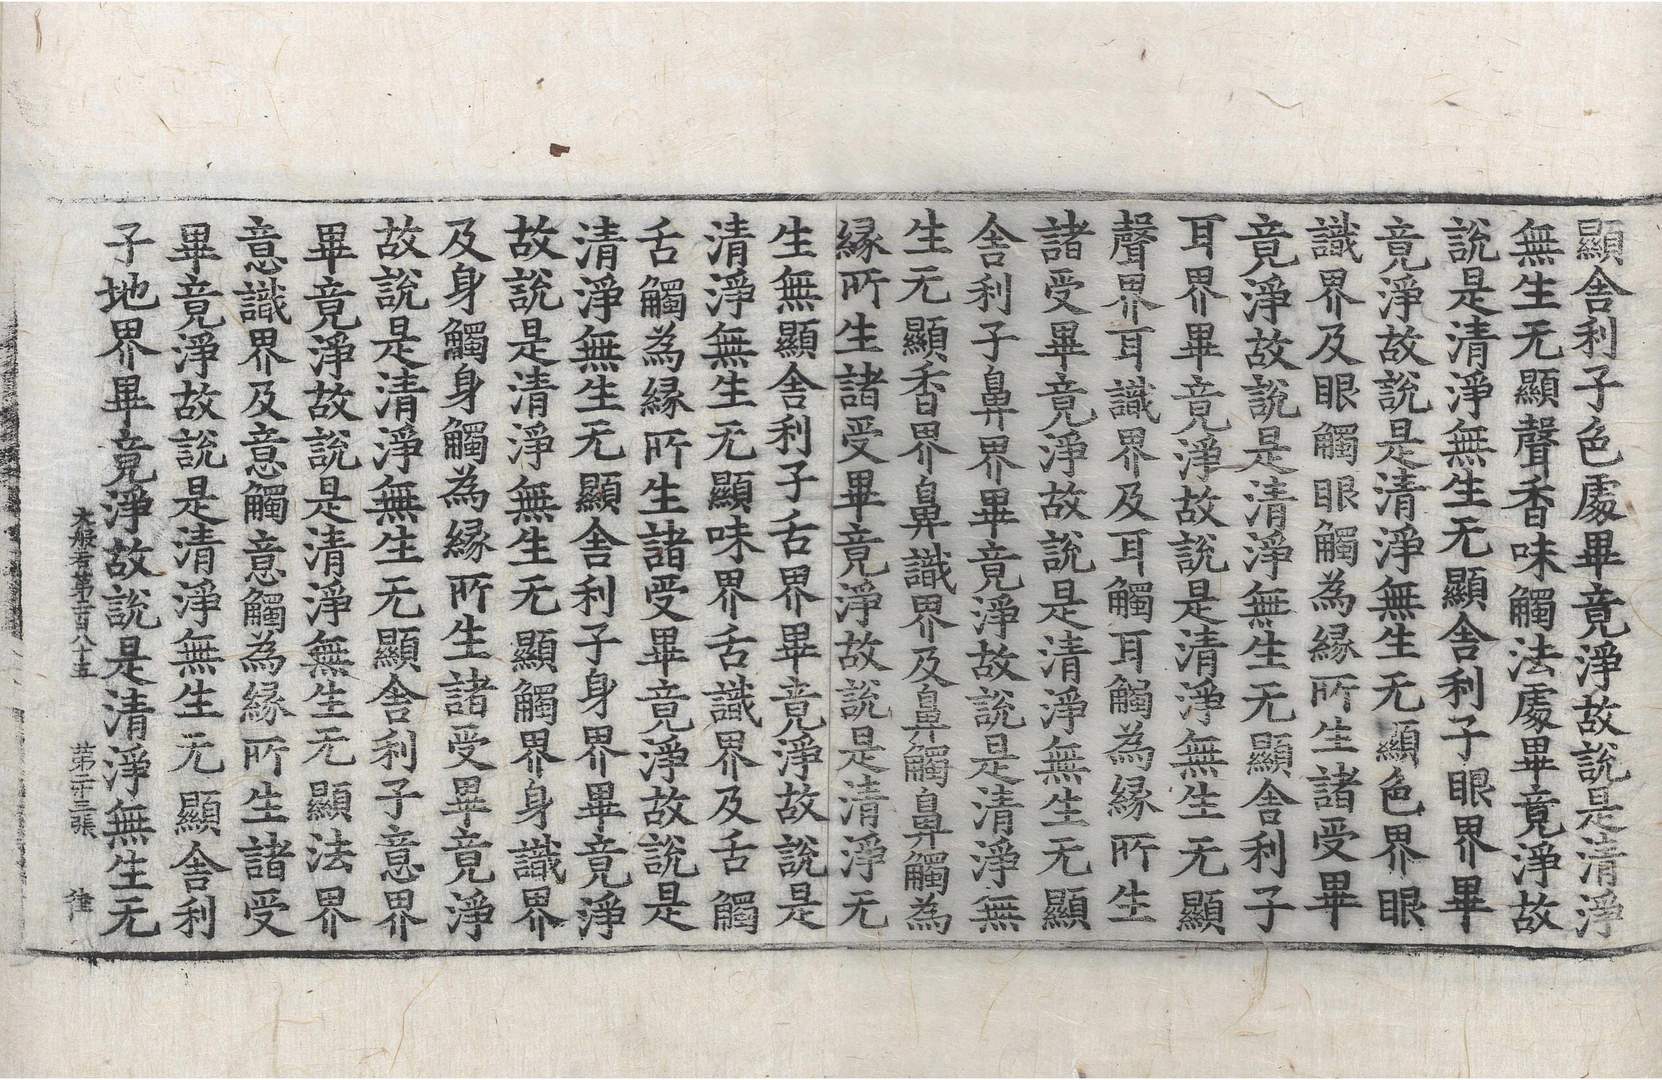 顯舍利子色處畢竟淨故說是清淨
無生无顯聲香味觸法處畢竟淨故
說是清淨無生无顯舍利子眼界畢
竟淨故說是清淨無生无顯色界眼
識界及眼觸眼觸為緣所生諸受畢
竟淨故說是清淨無生无顯舍利子
耳界畢竟淨故說是清淨無生无顯
聲界耳識界及耳觸耳觸為緣所生
諸受畢竟淨故說是清淨無生无顯
舍利子鼻界畢竟淨故說是清淨無
生无顯香界鼻識界及鼻觸鼻觸為
緣所生諸受畢竟淨故說是清淨无
生無顯舍利子舌界畢竟淨故說是
清淨無生无顯味界舌識界及舌觸
舌觸為緣所生諸受畢竟淨故說是
清淨無生无顯舍利子身界畢竟淨
故說是清淨無生无顯觸界身識界
及身觸身觸為緣所生諸受畢竟淨
故說是清淨無生无顯舍利子意界
畢竟淨故說是清淨無生无顯法界
意識界及意觸意觸為緣所生諸受
畢竟淨故說是清淨無生无顯舍利
子地界畢竟淨故說是清淨無生无
大般若第二百八十五 第二十三張 律